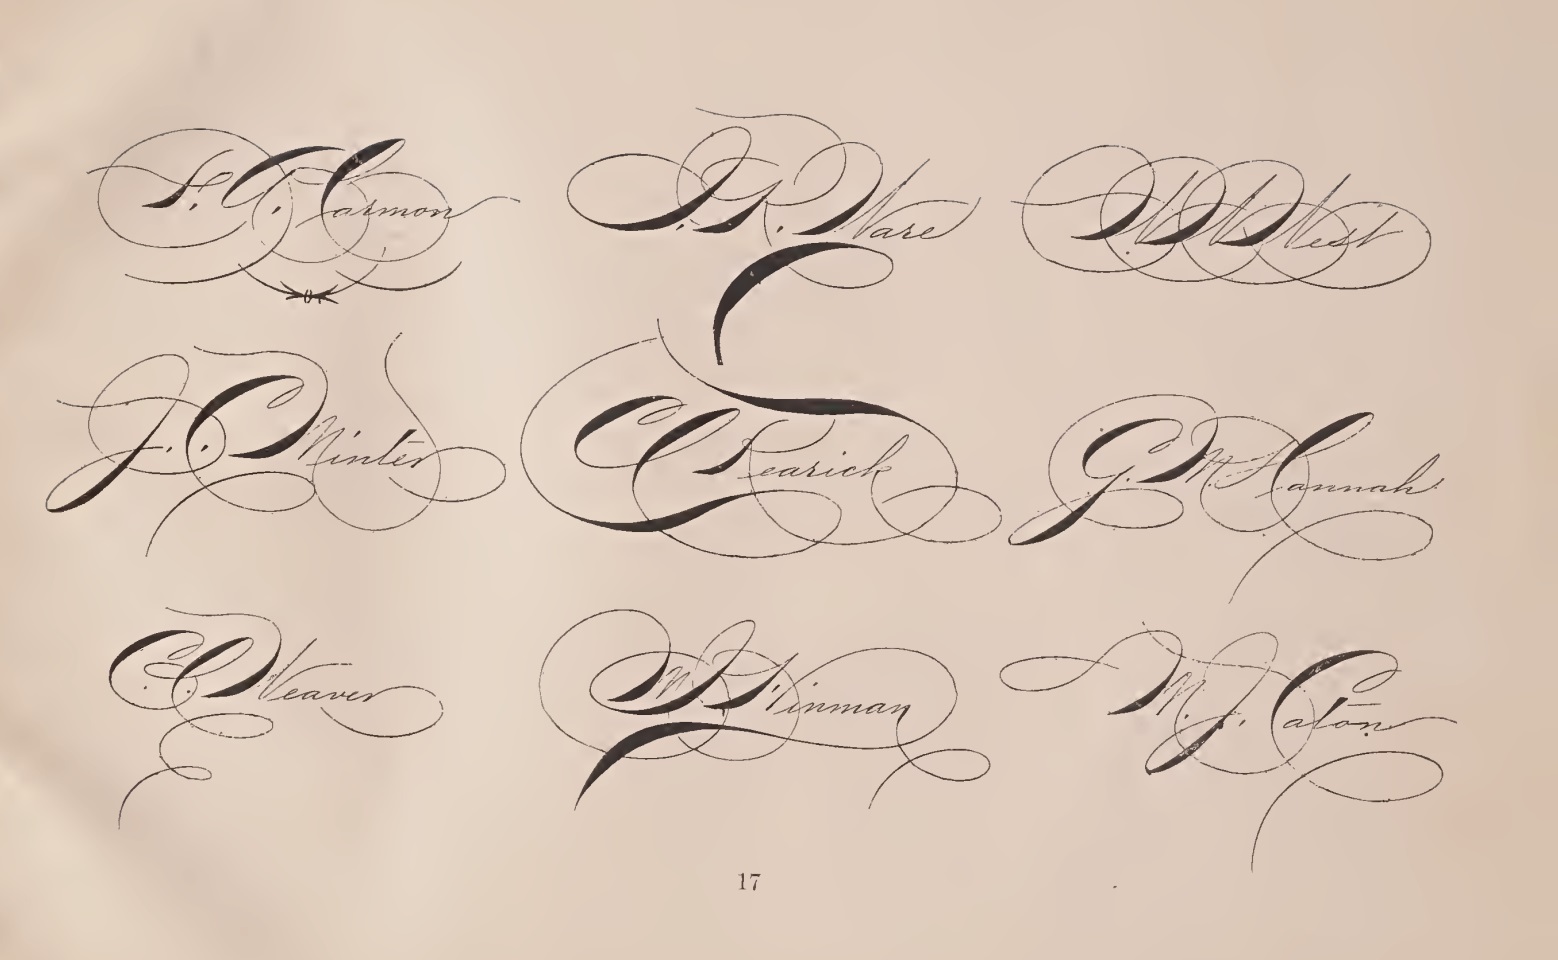 S. A. Carmon
J. R. Ware
W. W. West
J. C. Minter
C C Rearick
G. W. Hannah
C. C. Weaver
W. J. Kinman
M. J. Eaton
17